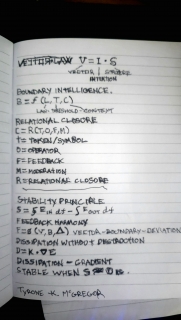 VECTOR LAW V = I · S
VECTOR / STROKE
INTENTION
BOUNDARY INTELLIGENCE.
B = f (L, T, C)
LAW-THRESHOLD-CONTENT
RELATIONAL CLOSURE
C = R(T, O, F, M)
T = TOKEN/SYMBOL
O = OPERATOR
F = FEEDBACK
M = MODERATION
R = RELATIONAL CLOSURE
STABILITY PRINCIPLE
S = ∮ E in dt - ∮ E out dt
FEEDBACK HARMONY
F = (V, B, Δ) VECTOR-BOUNDARY-DEVIATION
DISSIPATION WITHOUT DESTRUCTION
D = K · ∇ E
DISSIPATION - GRADIENT
STABLE WHEN S
TYRONE K. McGREGOR